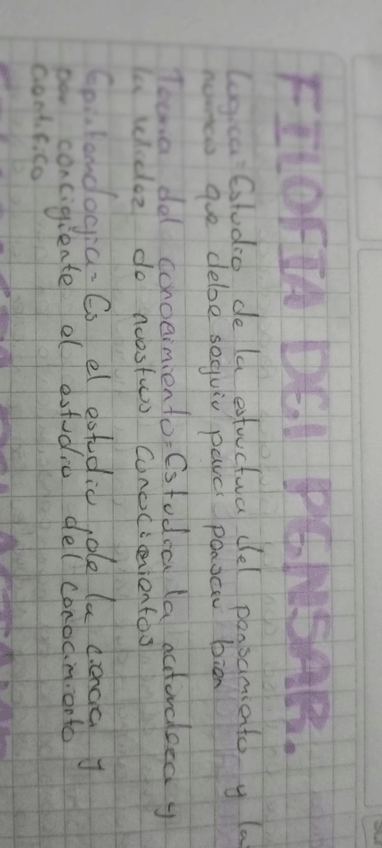 FILOFIA DEl PENSAR.
Logica=Estudio de la estructura del pensamiento y la
que debe seguir para pensar bien
Teoria del conocimiento=Estudia la naturaleza y
la validez de nuestros conocimientos
Epistemologia= Es el estudio de la ciencia y
por concigiente el estudio del conocimiento
cientifico